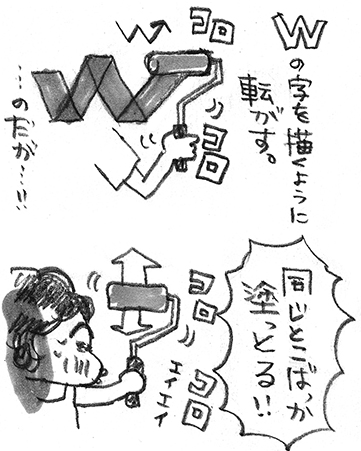 Wの字を描くように
転がす。
コロ
コロ
…のだが…!!
同じとこばっか
塗っとる!!
コロ
コロ
エイエイ